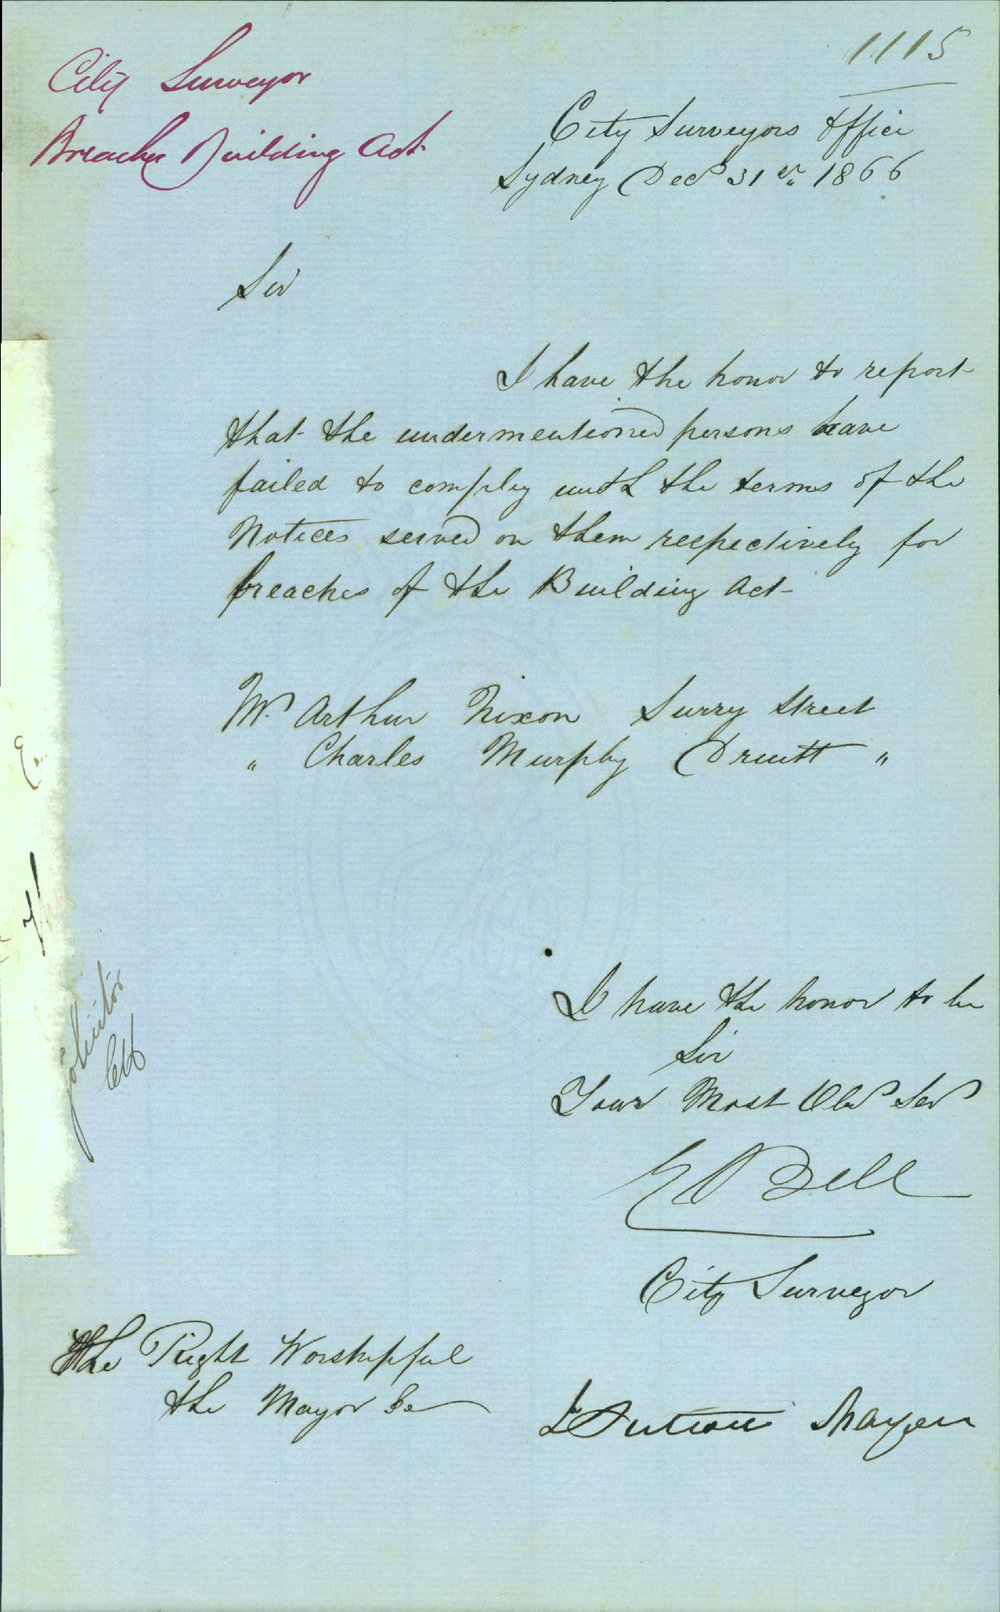 1115
City Surveyor
Breaches Building Act
City Surveyors Office
Sydney Decr 31st 1866
Sir
I have the honor to report
that the undermentioned persons have
failed to comply with the terms of the
Notices served on them respectively for
breaches of the Building Act
Mr Arthur Nixon Surry Street
" Charles Murphy Druitt "
I have the honor to be
Sir
Your Most Obt Servt
E Bell
City Surveyor
The Right Worshipful
the Mayor &c
Mayor
Solicitor